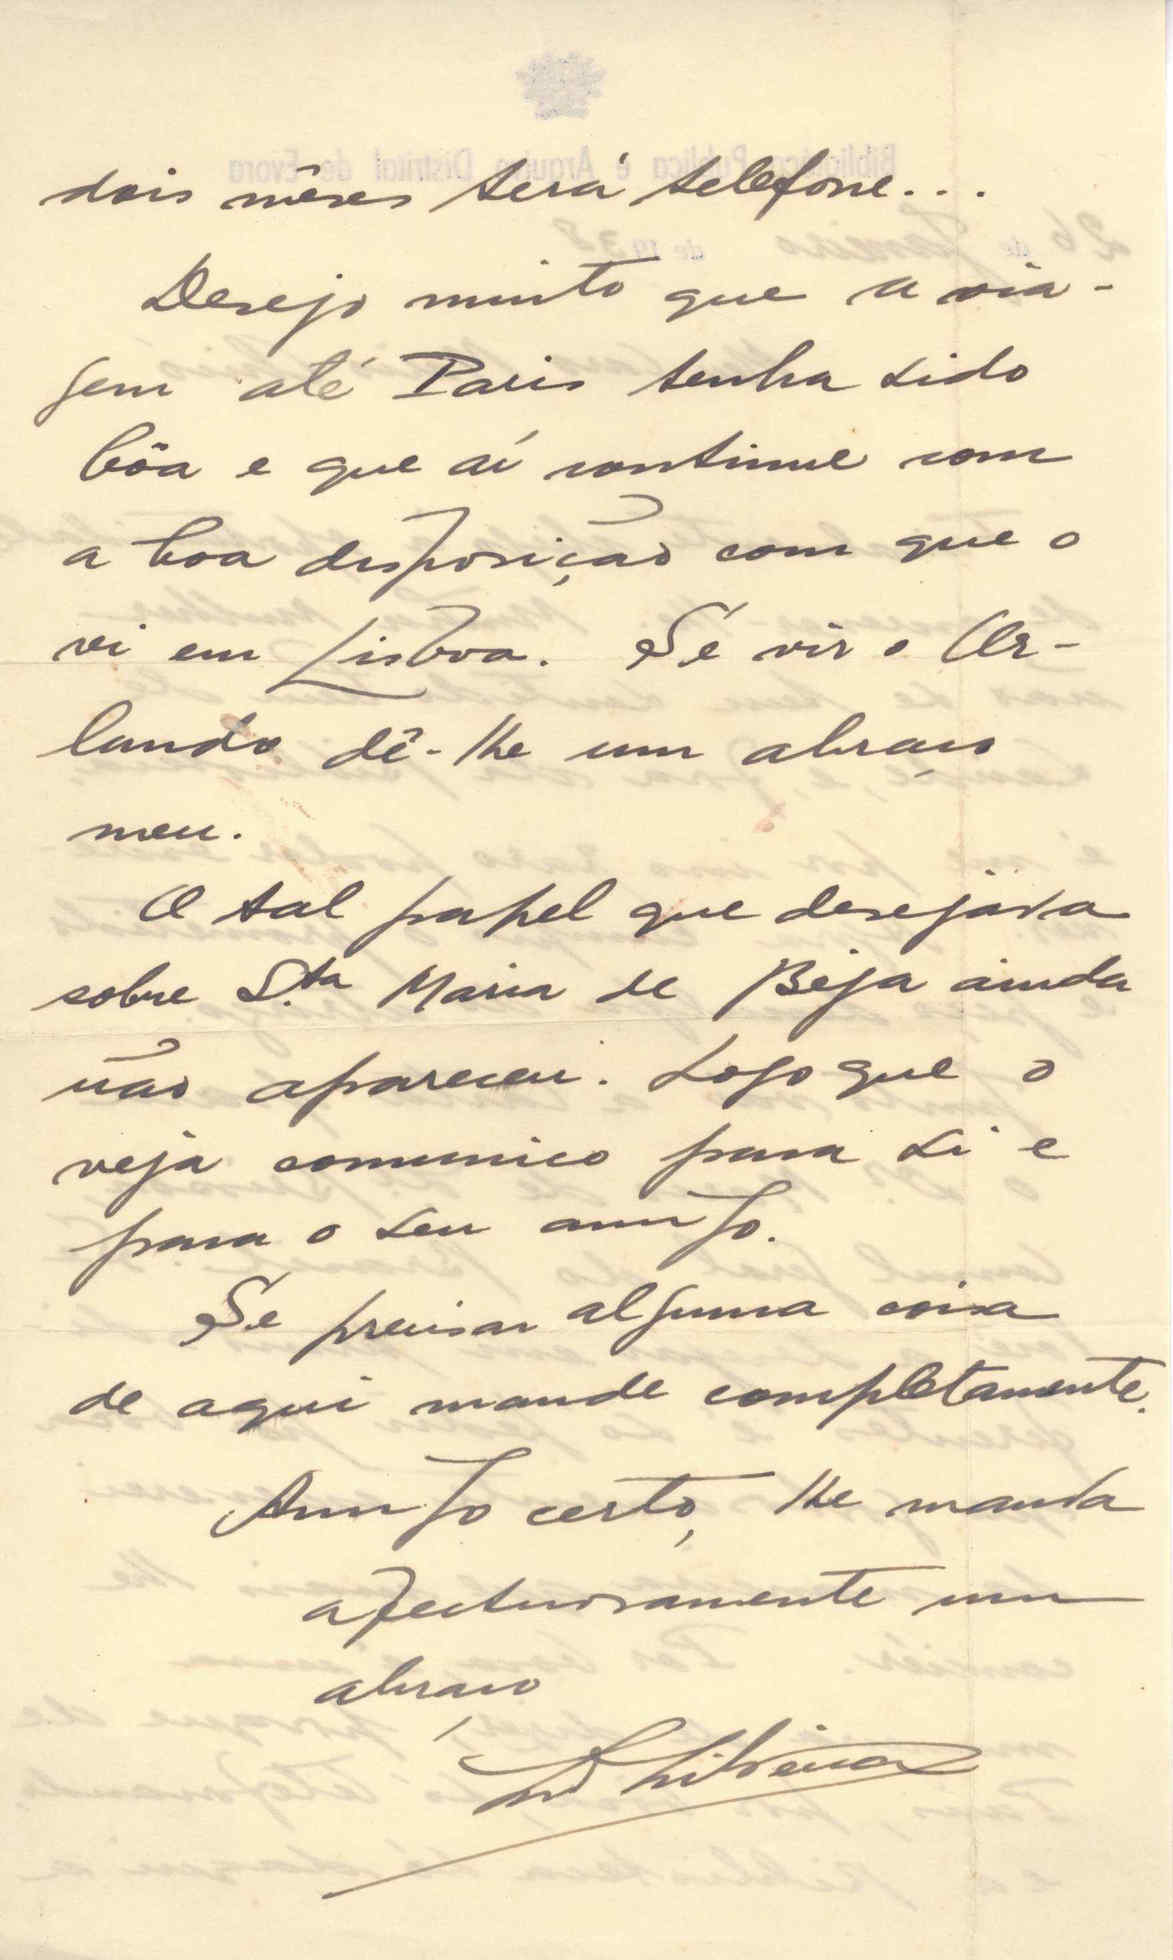 dois mêses terá telefone...
Desejo muito que a via-
gem até Paris tenha sido
bôa e que aí continue com
a boa disposição com que o
vi em Lisboa. Se vir o Or-
lando dê-lhe um abraço
meu.
O tal papel que desejava
sobre S.ta Maria de Beja ainda
não apareceu. Logo que o
veja comunico para si e
para o seu amigo.
Se precisar alguma coisa
de aqui mande completamente.
Amigo certo, lhe manda
afectuosamente um
abraço
Silveira